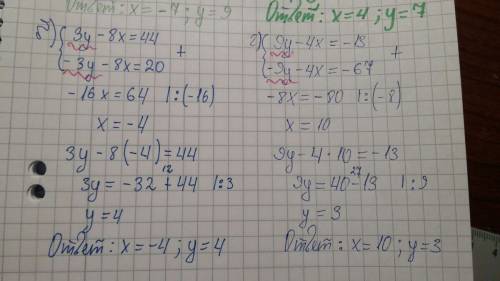 Ответ: x = -7; y = 9
Ответ: x = 4; y = 7
б) { 3y - 8x = 44
{ -3y - 8x = 20 +
-16x = 64 |:(-16)
x = -4
3y - 8(-4) = 44
12
3y = -32 + 44 |:3
y = 4
Ответ: x = -4; y = 4
г) { 9y - 4x = -13
{ -9y - 4x = -67 +
-8x = -80 |:(-8)
x = 10
9y - 4 · 10 = -13
27
9y = 40 - 13 |:9
y = 3
Ответ: x = 10; y = 3